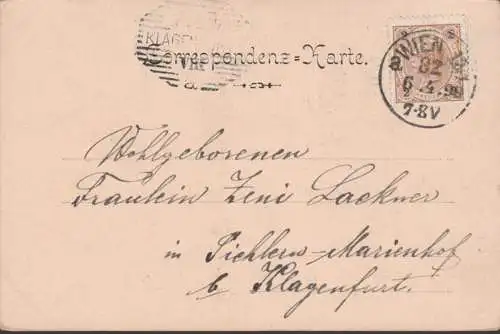 KLAGEN
Correspondenz=Karte.
WIEN
82
6 4
7-8V
Wohlgeborenen
Fräulein Zeni Lackner
in Pichlern-Marienhof
b. Klagenfurt.